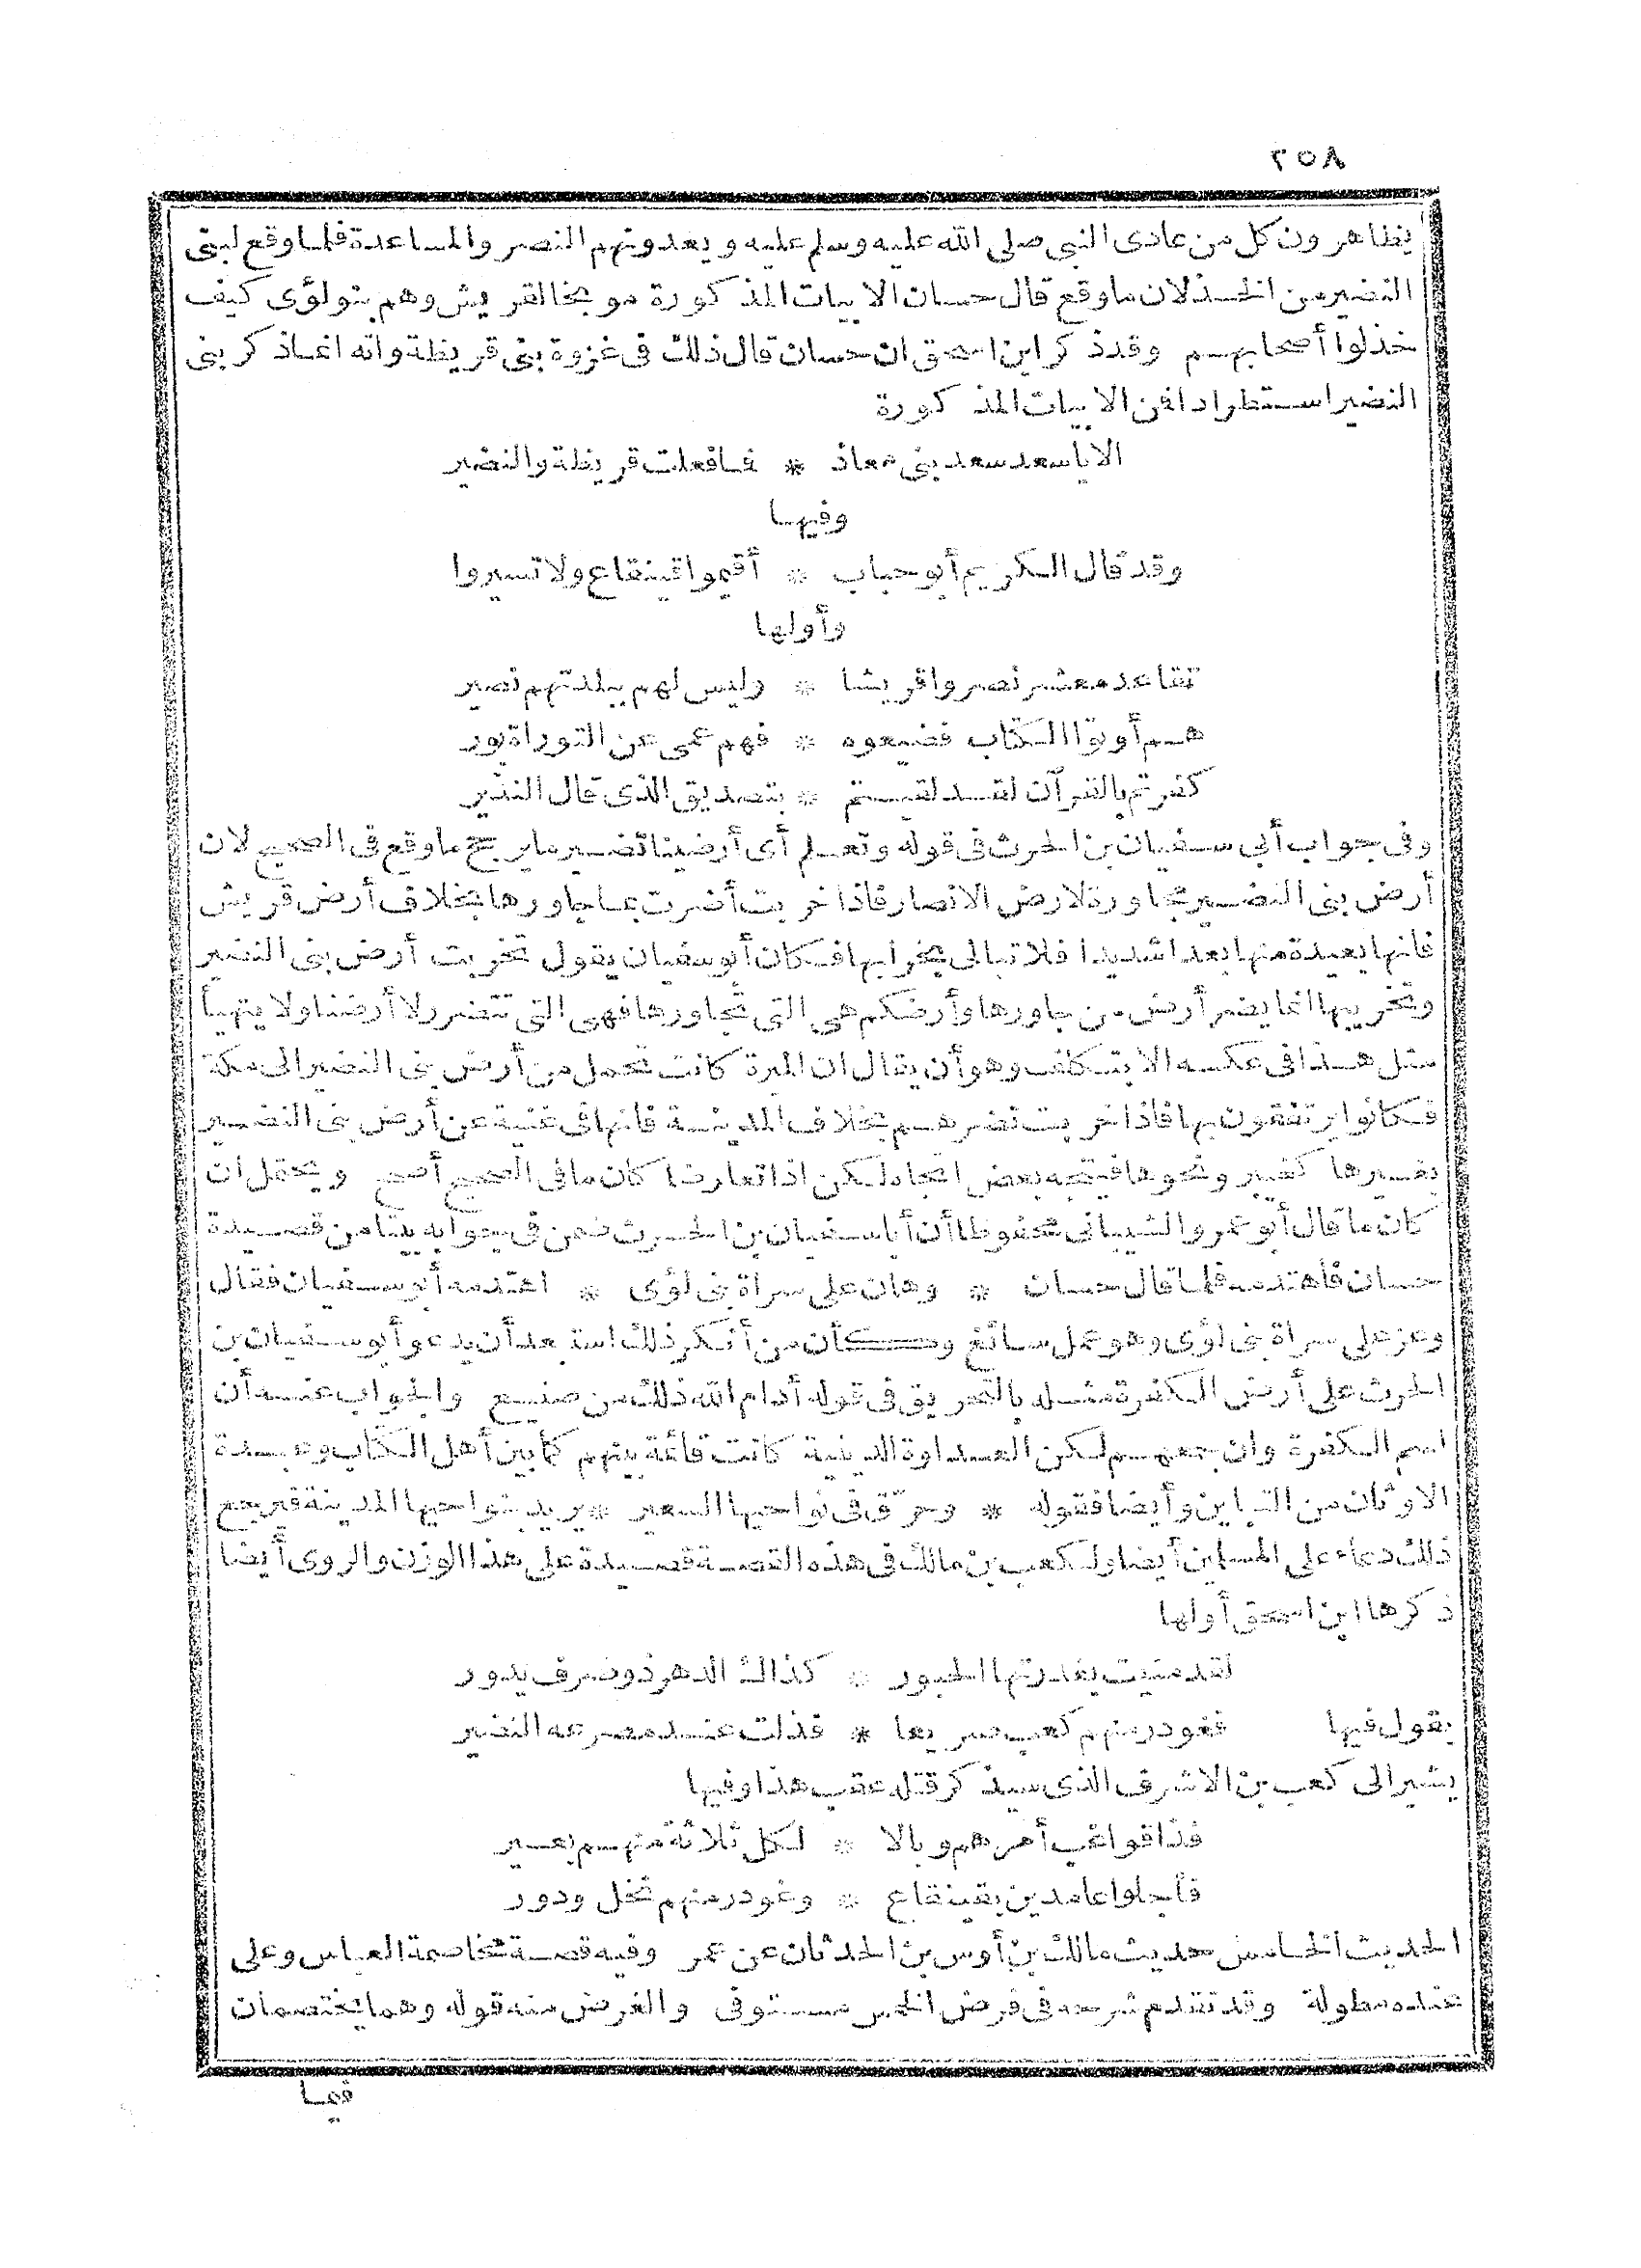 ٢٥٨
يظاهرون كل من عادى النبي صلى الله عليه وسلم عليه ويعدونهم النصر والمساعدة فلما وقع لبنى
النضير من الخذلان ما وقع قال حسان الابيات المذكورة موبخا لقريش وهم بنو لؤى كيف
خذلوا أصحابهم وقد ذكر ابن اسحق ان حسان قال ذلك فى غزوة بنى قريظة وانه انما ذكر بنى
النضير استطرادا فمن الابيات المذكورة
الا يا سعد سعد بنى معاذ * فما فعلت قريظة والنضير
وفيها
وقد قال الكريم أبو حباب * أقيموا قينقاع ولا تسيروا
وأولها
تقاعد معشر نصروا قريشا * وليس لهم ببلدتهم نصير
هم أوتوا الكتاب فضيعوه * فهم عمى عن التوراة بور
كفرتم بالقرآن لقد لقيتم * بتصديق الذى قال النذير
وفى جواب أبى سفيان بن الحرث فى قوله وتعلم أى أرضينا تضير ما يرجح ما وقع فى الصحيح لان
أرض بنى النضير مجاورة لارض الانصار فاذا خربت أضرت بما جاورها بخلاف أرض قريش
فانها بعيدة منها بعدا شديدا فلا تبالى بخرابها فكان أبو سفيان يقول تخربت أرض بنى النضير
وتخريبها انما يضر أرض من جاورها وأرضكم هى التى تجاورها فهى التى تتضرر لا أرضنا ولا يتهيأ
مثل هذا فى عكسه الا بتكلف وهو أن يقال ان الميرة كانت تحمل من أرض بنى النضير الى مكة
فكانوا يرتفقون بها فاذا خربت تضرهم بخلاف المدينة فانها فى غنية عن أرض بنى النضير
بغيرها كخيبر ونحوها فيتجه بعض اتجاه لكن اذا تعارضا كان ما فى الصحيح أصح ويحتمل ان
كان ما قال أبو عمرو الشيبانى محفوظا أن أبا سفيان بن الحرث ضمن فى جوابه بيتا من قصيدة
حسان فاهتدمه فلما قال حسان * وهان على سراة بنى لؤى * اهتدمه أبو سفيان فقال
وعز على سراة بنى لؤى وهو عمل سائغ وكأن من أنكر ذلك استبعد أن يدعو أبو سفيان بن
الحرث على أرض الكفرة مثله بالتحريق فى قوله أدام الله ذلك من صنيع والجواب عنه أن
اسم الكفرة وان جمعهم لكن العداوة الدينية كانت قائمة بينهم كما بين أهل الكتاب وعبدة
الاوثان من التباين وأيضا فقوله * وحرّق فى نواحيها السعير * يريد بنواحيها المدينة فيرجع
ذلك دعاء على المسلمين أيضا ولكعب بن مالك فى هذه القصة قصيدة على هذا الوزن والروى أيضا
ذكرها ابن اسحق أولها
لقد منيت بغدرتها الحبور * كذاك الدهر ذو صرف يدور
يقول فيها فغودر منهم كعب صريعا * فذلت عند مصرعه النضير
يشير الى كعب بن الاشرف الذى سيذكر قتله عقب هذا وفيها
فذاقوا غب أمرهم وبالا * لكل ثلاثة منهم بعير
فأجلوا عامدين بقينقاع * وغودر منهم نخل ودور
الحديث الخامس حديث مالك بن أوس بن الحدثان عن عمر وفيه قصة مخاصمة العباس وعلى
عنده مطولة وقد تقدم شرحه فى فرض الخمس مستوفى والغرض منه قوله وهما يختصمان
فيما